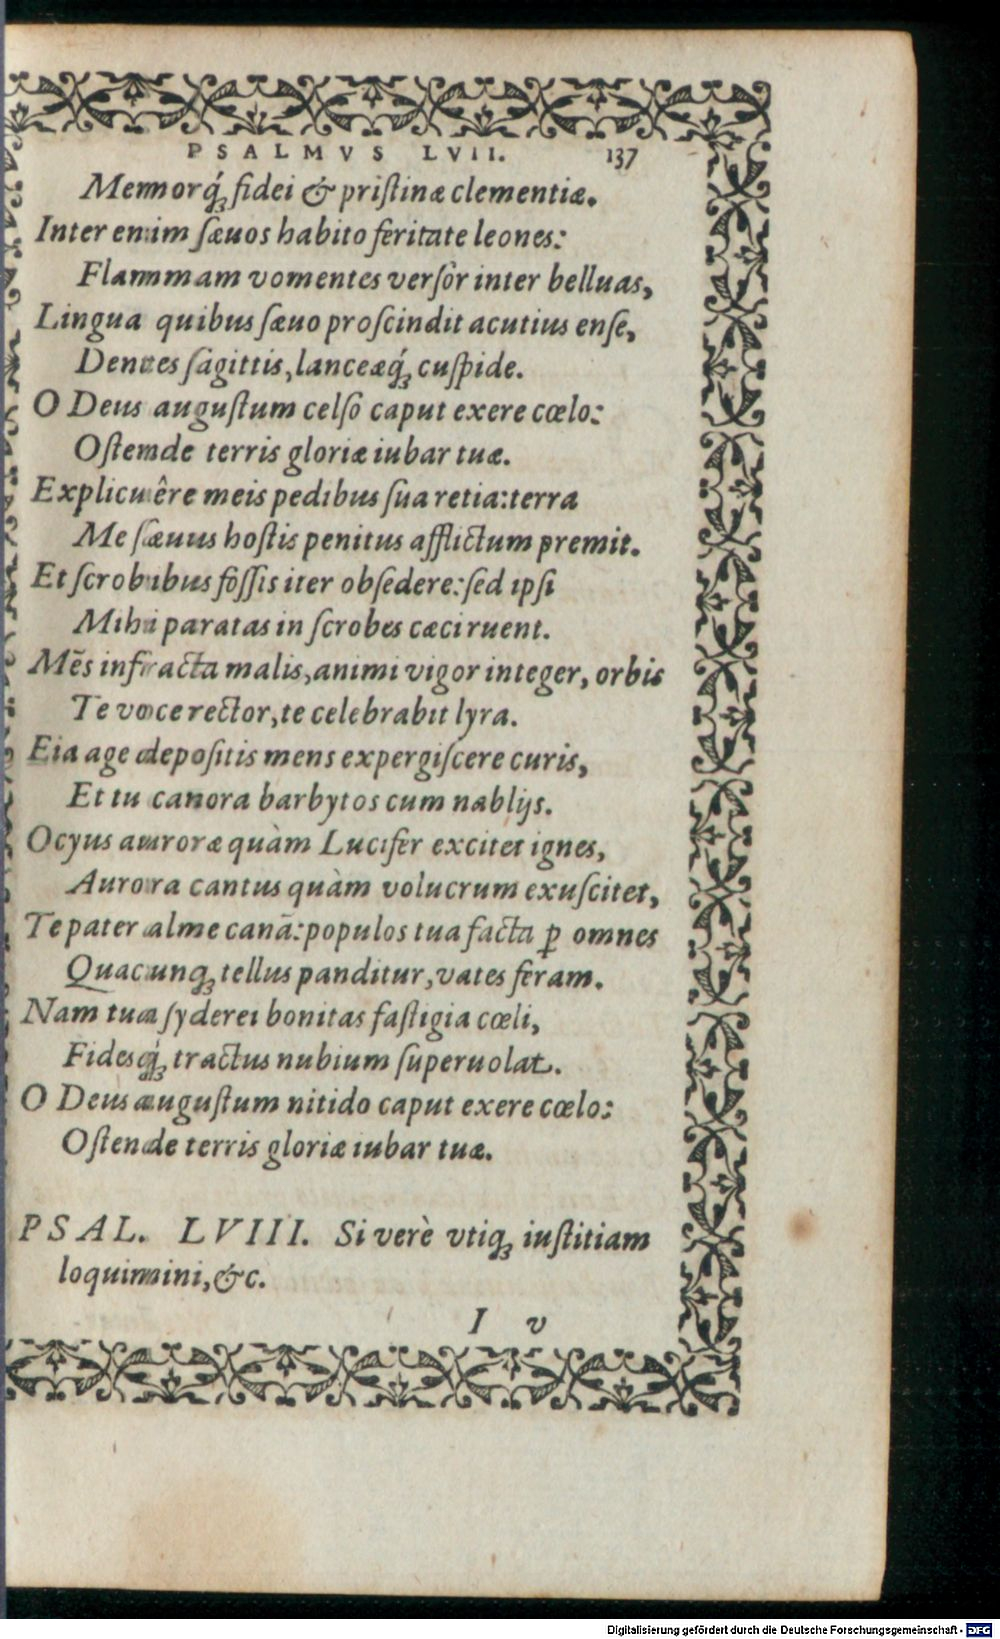 PSALMVS LVII. 137
Memorq́; fidei & priſtinæ clementiæ.
Inter enim ſæuos habito feritate leones:
Flammam vomentes verſor inter belluas,
Lingua quibus ſæuo proſcindit acutius enſe,
Dentes ſagittis, lanceæq́; cuſpide.
O Deus auguſtum celſo caput exere cœlo:
Oſtende terris gloriæ iubar tuæ.
Explicuêre meis pedibus ſua retia: terra
Me ſæuus hoſtis penitus afflictum premit.
Et ſcrobibus foſſis iter obſedere: ſed ipſi
Mihi paratas in ſcrobes cæci ruent.
Mẽs infracta malis, animi vigor integer, orbis
Te voce rector, te celebrabit lyra.
Eia age depoſitis mens expergiſcere curis,
Et tu canora barbytos cum nablijs.
Ocyus auroræ quàm Lucifer excitet ignes,
Aurora cantus quàm volucrum exuſcitet,
Te pater alme canã: populos tua facta ꝑ omnes
Quacunq; tellus panditur, vates feram.
Nam tua ſyderei bonitas faſtigia cœli,
Fidesq́; tractus nubium ſuperuolat.
O Deus auguſtum nitido caput exere cœlo:
Oſtende terris gloriæ iubar tuæ.
PSAL. LVIII. Si verè vtiq; iuſtitiam
loquimini, &c.
I v
Digitalisierung gefördert durch die Deutsche Forschungsgemeinschaft - DFG